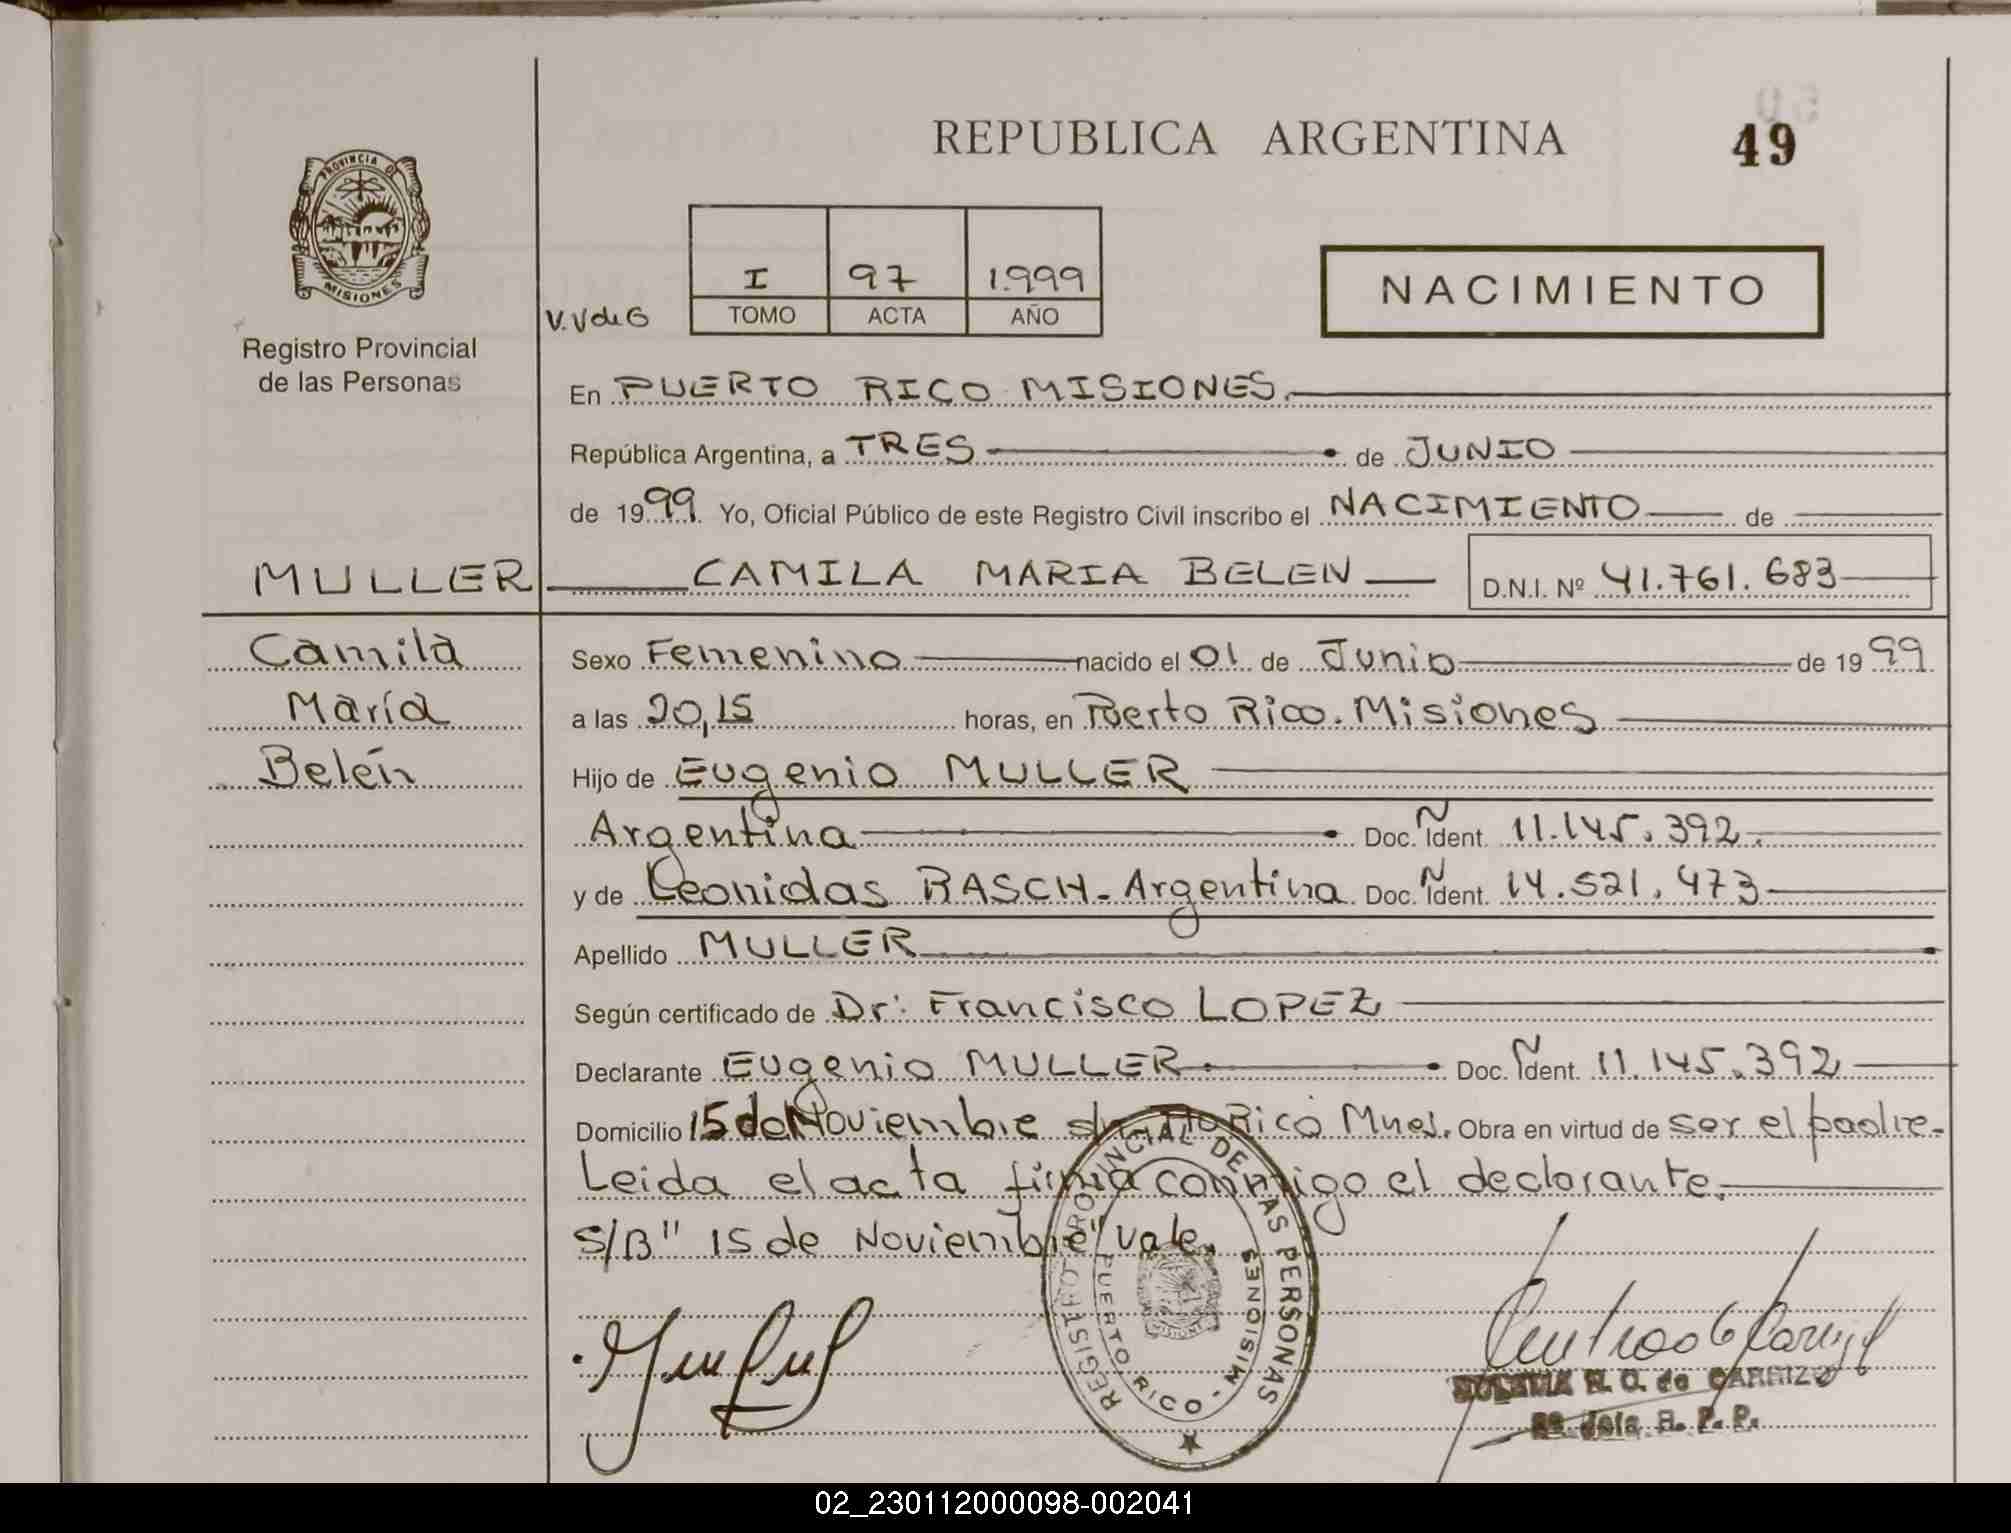 REPUBLICA ARGENTINA
49
PROVINCIA DE
MISIONES
Registro Provincial
de las Personas
V.V de G
I 97 1.999
TOMO ACTA AÑO
NACIMIENTO
En PUERTO RICO MISIONES.
República Argentina, a TRES de JUNIO
de 1999. Yo, Oficial Público de este Registro Civil inscribo el NACIMIENTO de
MULLER CAMILA MARIA BELEN D.N.I. Nº 41.761.683
Camila
María
Belén
Sexo Femenino nacido el 01 de Junio de 1999
a las 20,15 horas, en Puerto Rico. Misiones
Hijo de Eugenio MULLER
Argentina Doc. Ident. 11.145.392.
y de Leonidas RASCH - Argentina Doc. Ident. 14.521.473
Apellido MULLER
Según certificado de Dr: Francisco LOPEZ
Declarante Eugenio MULLER Doc. Ident. 11.145.392
Domicilio 15 de Noviembre s/n Pto Rico Mnes. Obra en virtud de ser el padre.
Leida el acta firma conmigo el declarante.
S/B" 15 de Noviembre" vale.
REGISTRO PROVINCIAL DE LAS PERSONAS
PUERTO RICO - MISIONES
MISIONES
R. O. de CARRIZO
R. P. P.
02_230112000098-002041